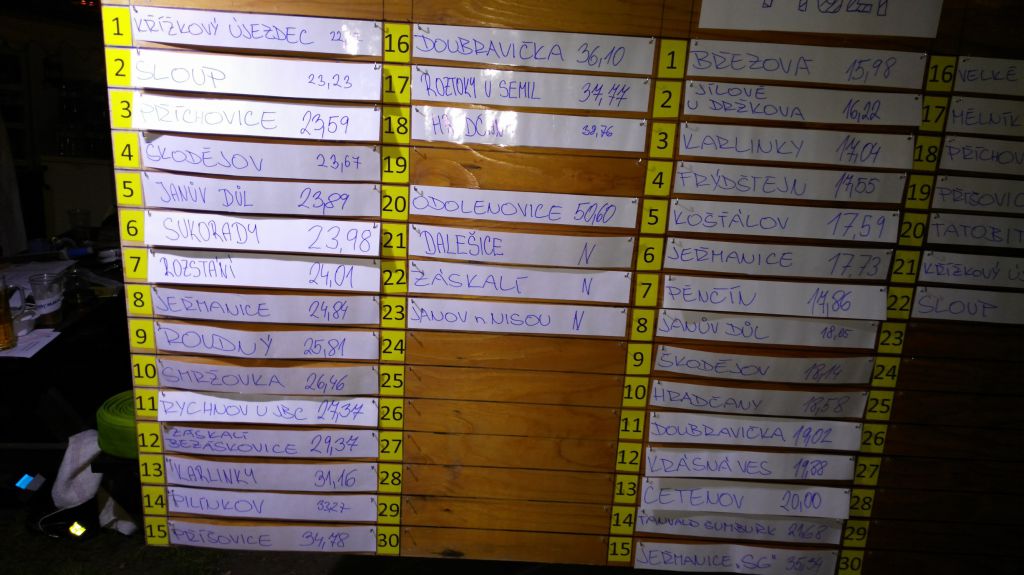 1 KŘÍŽKOVÝ ÚJEZDEC
2 SLOUP 23,23
3 PŘÍCHOVICE 23,59
4 ŠKODĚJOV 23,67
5 JANŮV DŮL 23,89
6 SUKORADY 23,98
7 ROZSTÁNÍ 24,01
8 JEŘMANICE 24,84
9 ROUDNÝ 25,81
10 SMRŽOVKA 26,46
11 RYCHNOV U JBC 27,37
12 ZÁSKALÍ BEZÁSKOVICE 29,37
13 KARLINKY 31,16
14 PILÍNKOV 33,27
15 PŘÍŠOVICE 34,78
16 DOUBRAVIČKA 36,10
17 ROZTOKY U SEMIL 37,77
18 38,76
19
20 ODOLENOVICE 50,60
21 DALEŠICE N
22 ZÁSKALÍ N
23 JANOV n NISOU N
24
25
26
27
28
29
30
1 BŘEZOVÁ 15,98
2 JÍLOVÉ U DRŽKOVA 16,22
3 KARLINKY 17,04
4 FRÝDŠTEJN 17,55
5 KOŠŤÁLOV 17,59
6 JEŘMANICE 17,73
7 PĚNČÍN 17,86
8 JANŮV DŮL 18,05
9 ŠKODĚJOV 18,14
10 HRADČANY 18,58
11 DOUBRAVIČKA 19,02
12 KRÁSNÁ VES 19,88
13 ČETENOV 20,00
14 TANVALD ŠUMBURK 21,68
15 JEŘMANICE „SG" 35,34
16 VELKÉ
17 MĚLNÍK
18 PŘÍCHOV
19 PŘÍŠOVIC
20 TATOBIT
21 KŘÍŽKOVÝ Ú
22 SLOUP
23
24
25
26
27
28
29
30